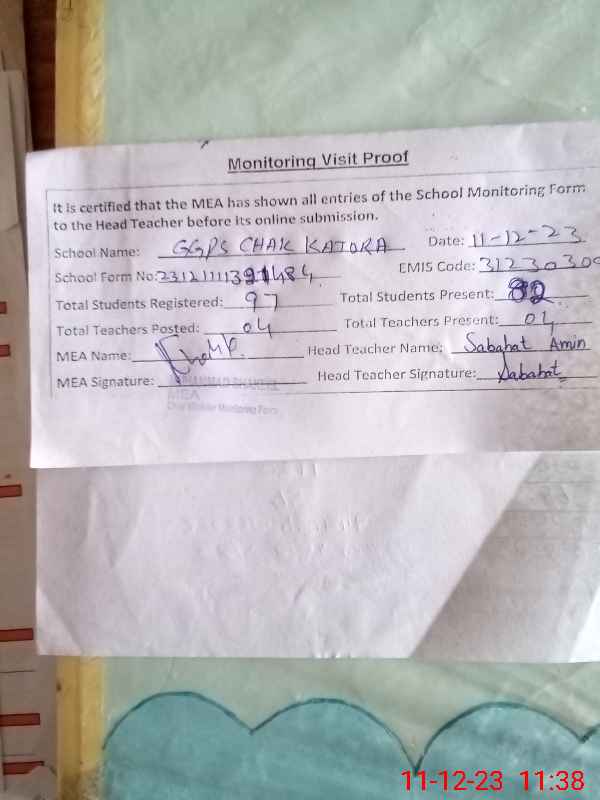 Monitoring Visit Proof
It is certified that the MEA has shown all entries of the School Monitoring Form
to the Head Teacher before its online submission.
School Name: GGPS CHAK KATORA Date: 11-12-23
School Form No: EMIS Code: 31230300
Total Students Registered: 97 Total Students Present: 82
Total Teachers Posted: 04 Total Teachers Present: 04
MEA Name: Head Teacher Name: Sabahat Amin
MEA Signature: Head Teacher Signature: Sabahat
MEA
11-12-23 11:38